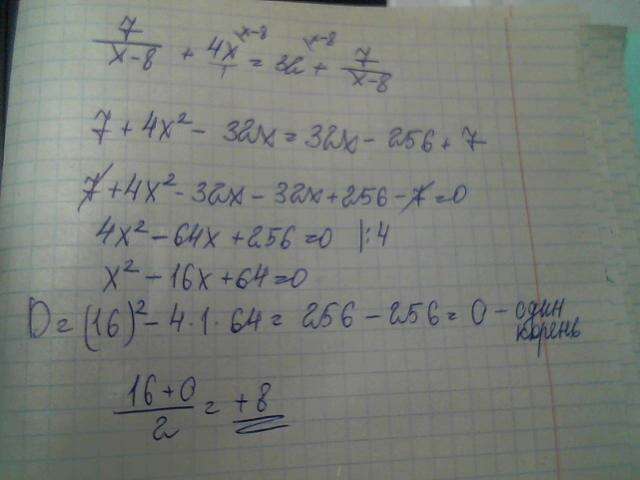 7/(x-8) + 4x/1 ^(x-8) = 32 ^(x-8) + 7/(x-8)
7 + 4x² - 32x = 32x - 256 + 7
7 + 4x² - 32x - 32x + 256 - 7 = 0
4x² - 64x + 256 = 0 |:4
x² - 16x + 64 = 0
D = (16)² - 4·1·64 = 256 - 256 = 0 - один корень
(16+0)/2 = +8